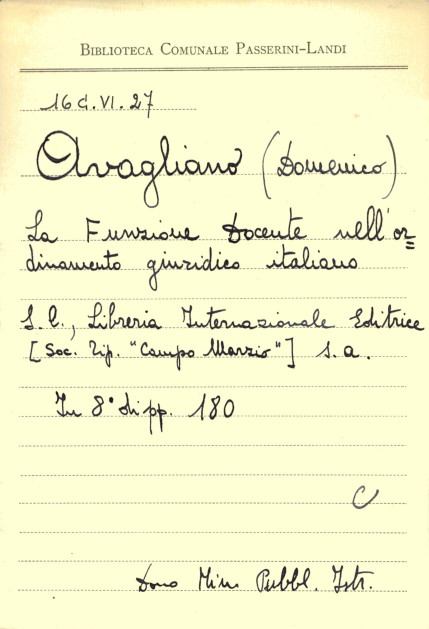 BIBLIOTECA COMUNALE PASSERINI-LANDI
16 C. VI. 27
Avagliano (Domenico)
La Funzione Docente nell'or=
dinamento giuridico italiano
S. l., Libreria Internazionale Editrice
[Soc. Tip. "Campo Marzio"] s. a.
In 8° di pp. 180
C
Dono Min Pubbl. Istr.